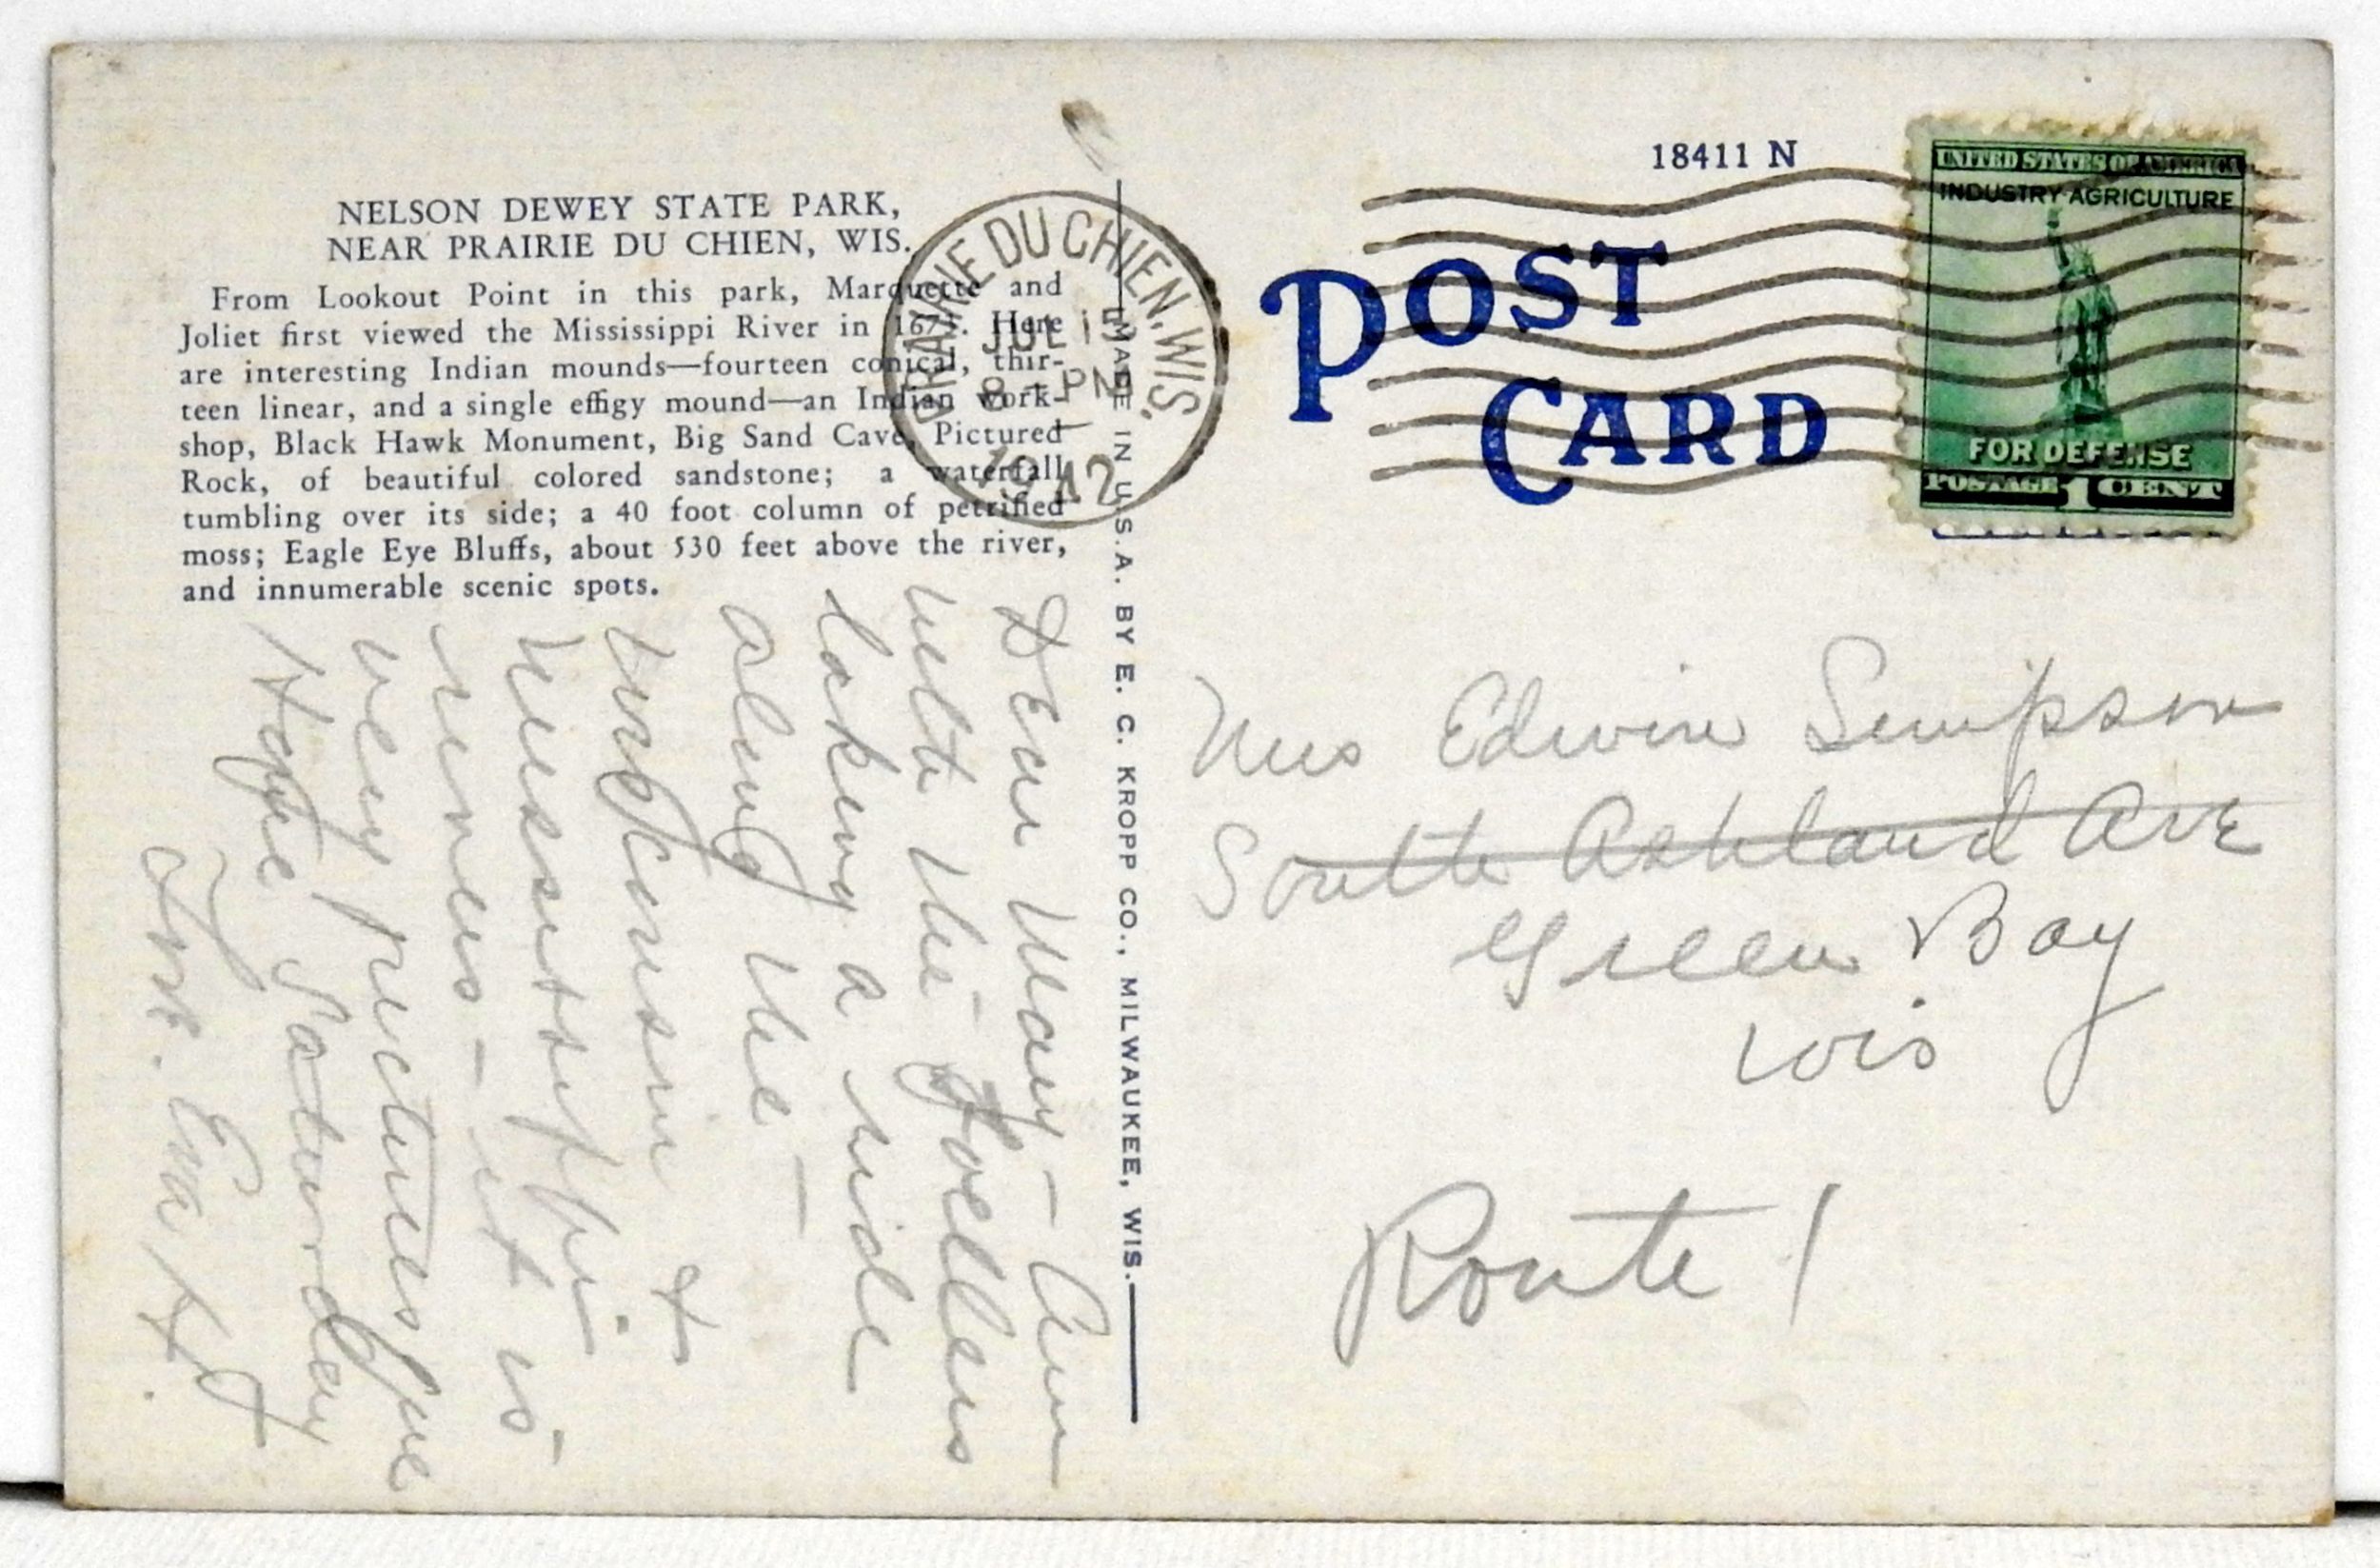 NELSON DEWEY STATE PARK,
NEAR PRAIRIE DU CHIEN, WIS.
From Lookout Point in this park, Marquette and
Joliet first viewed the Mississippi River in 1673. Here
are interesting Indian mounds—fourteen conical, thir-
teen linear, and a single effigy mound—an Indian work-
shop, Black Hawk Monument, Big Sand Cave, Pictured
Rock, of beautiful colored sandstone; a waterfall
tumbling over its side; a 40 foot column of petrified
moss; Eagle Eye Bluffs, about 530 feet above the river,
and innumerable scenic spots.
Dear Mary - Am
with the
taking a ride
along the -
Wisconsin &
Mississippi
rivers - it is
very picturesque
Home Saturday
Eva H.
PRAIRIE DU CHIEN, WIS.
JUL
8 - PM
1942
MADE IN U.S.A. BY E. C. KROPP CO., MILWAUKEE, WIS.
18411 N
POST
CARD
UNITED STATES OF AMERICA
INDUSTRY·AGRICULTURE
FOR DEFENSE
POSTAGE 1 CENT
Mrs Edwin Simpson
South Ashland Ave
Green Bay
Wis
Route 1